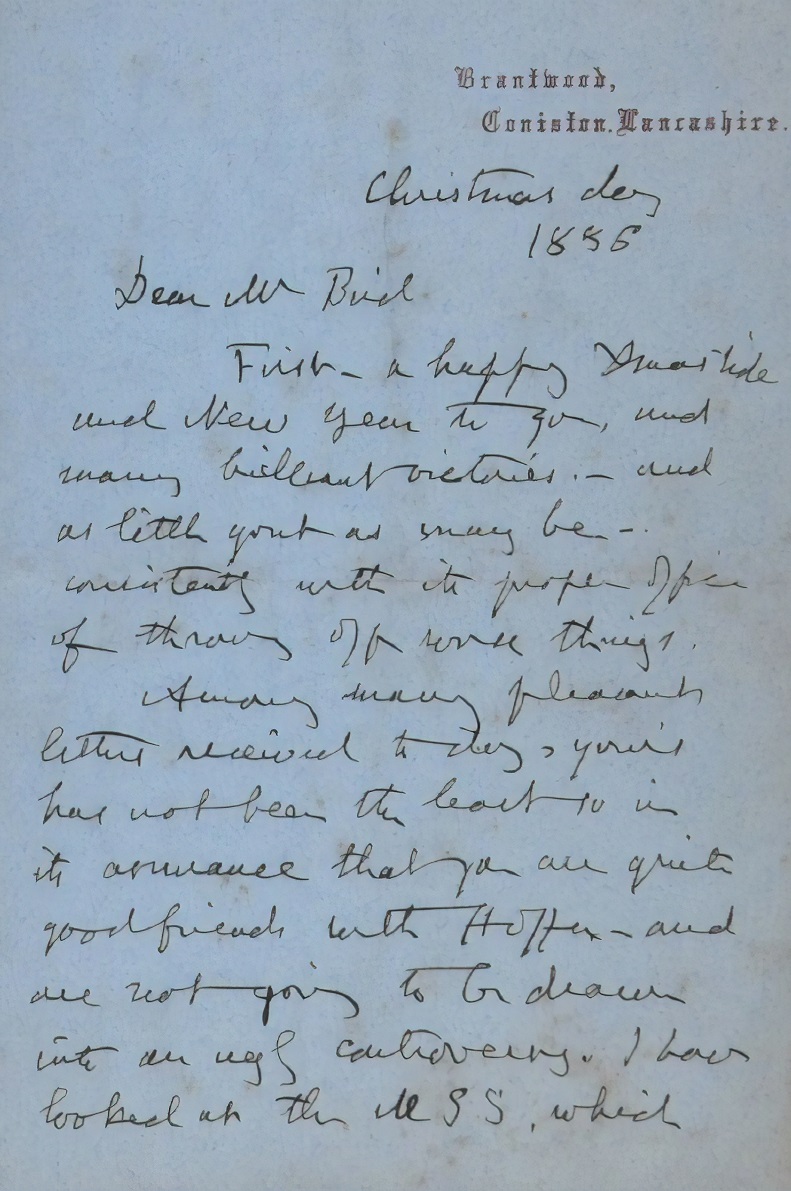 Brantwood,
Coniston. Lancashire.
Christmas day
1886
Dear Mr Bird
First – a happy Xmastide
and New Year to you, and
many brilliant victories. – and
as little gout as may be –.
consistently with its proper office
of throwing off worse things.
Among many pleasant
letters received to day, yours
has not been the least so in
its assurance that you are quite
good friends with Hoffer – and
are not going to be drawn
into an ugly controversy. I have
looked at the MSS, which